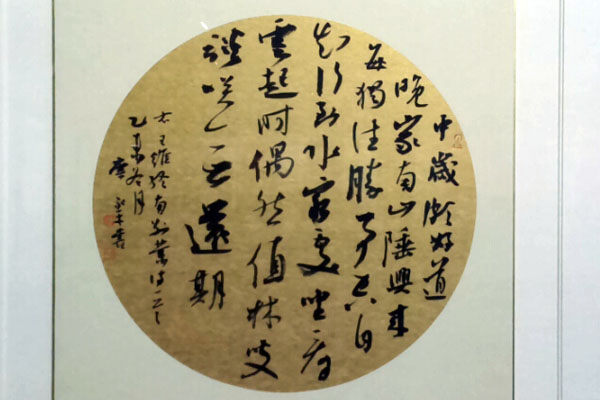 中歲頗好道
晚家南山陲興來
每獨往勝事空自
知行到水窮處坐看
雲起時偶然值林叟
談咲无還期
右王維終南別業詩一首
乙未冬月
書